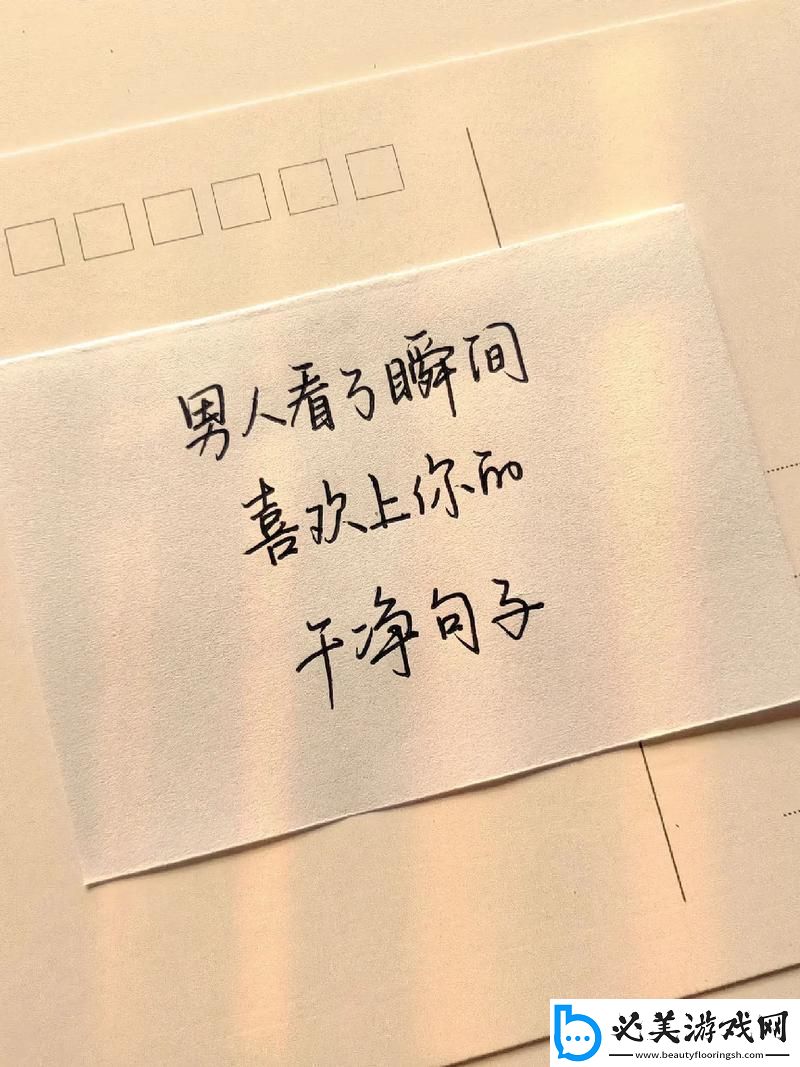 男人看了瞬间
喜欢上你的
干净句子
必美游戏网
www.beautyflooringsh.com